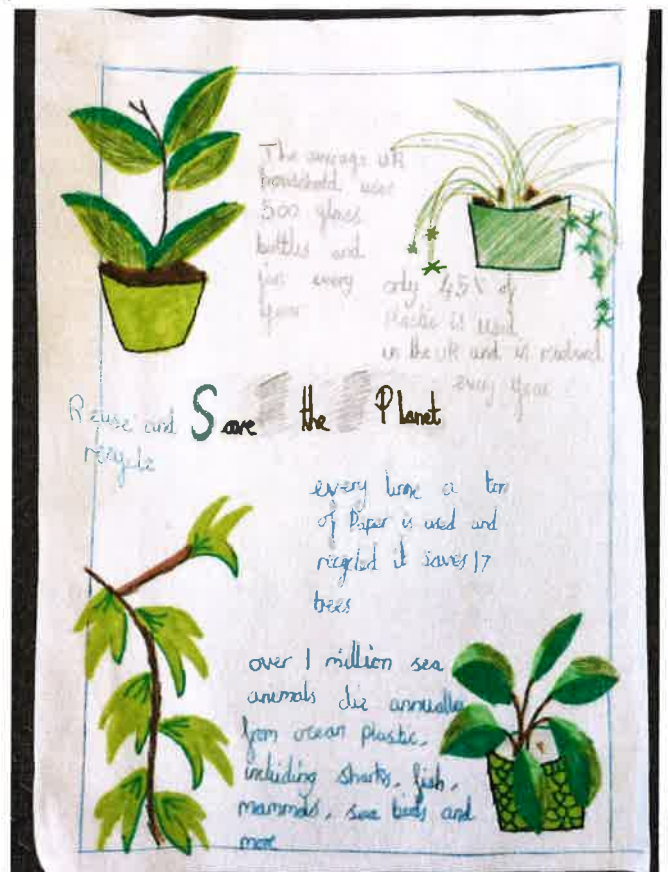 The average UK
household uses
500 glass
bottles and
jars every
year
only 45% of
Plastic is used
in the UK and is recycled
every year
Reuse and
recycle
Save the Planet
every time a ton
of Paper is used and
recycled it saves 17
trees
over 1 million sea
animals die annually
from ocean plastic,
including sharks, fish,
mammals, sea birds and
more